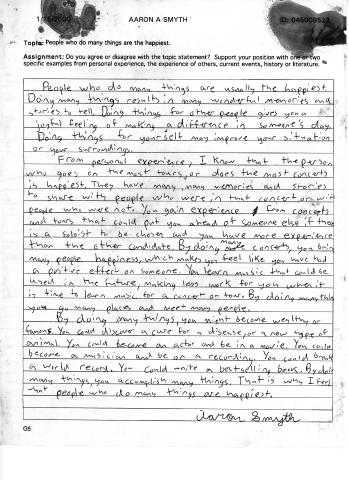 1/15/2000 AARON A SMYTH ID: 046009523
Topic: People who do many things are the happiest.
Assignment: Do you agree or disagree with the topic statement? Support your position with one or two
specific examples from personal experience, the experience of others, current events, history or literature.
People who do many things are usually the happiest.
Doing many things results in many wonderful memories and
stories to tell. Doing things for other people gives you a
joyful feeling of making a difference in someone's day.
Doing things for yourself may improve your situation
or your surroundings.
From personal experience, I know that the person
who goes on the most tours, or does the most concerts
is happiest. They have many, many memories and stories
to share with people who were in that concert or with
people who were not. You gain experience from concerts
and tours that could put you ahead of someone else if there
is a soloist to be chosen and you have more experience
than the other candidate. By doing many concerts, you bring
many people happiness, which makes you feel like you have had
a positive effect on someone. You learn music that could be
used in the future, making less work for you when it
is time to learn music for a concert or tour. By doing many
you go many places and meet many people.
By doing many things, you might become wealthy or
famous. You could discover a cure for a disease, or a new type of
animal. You could become an actor and be in a movie. You could
become a musician and be on a recording. You could break
a world record. You could write a bestselling book. By doing
many things, you accomplish many things. That is why I feel
that people who do many things are happiest.
Aaron Smyth
G5